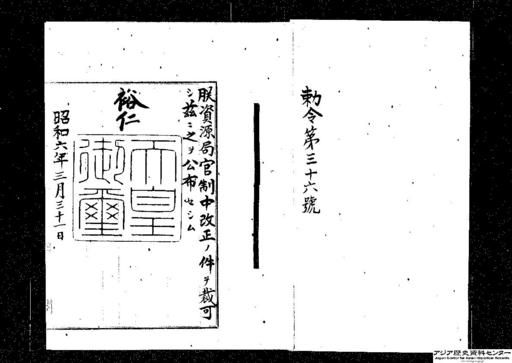 勅令第三十六號
朕資源局官制中改正ノ件ヲ裁可
シ茲ニ之ヲ公布セシム
裕仁
天皇
御璽
昭和六年三月三十一日
アジア歴史資料センター
Japan Center for Asian Historical Records